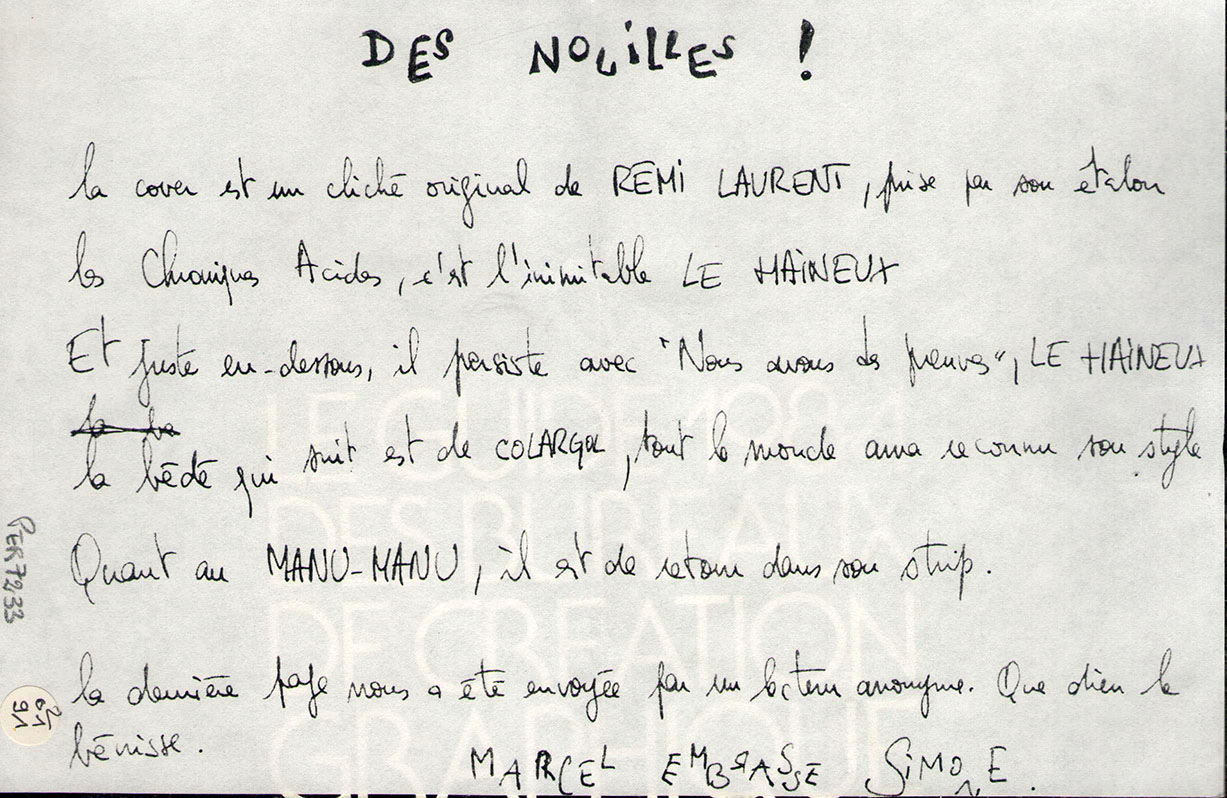 DES NOUILLES !
la cover est un cliché original de REMI LAURENT, prise par son étalon
les Chroniques Acides, c'est l'inimitable LE HAINEUX
Et juste en-dessous, il persiste avec "Nous avons des preuves", LE HAINEUX
la bédé qui suit est de COLARGOL, tout le monde aura reconnu son style
Quant au MANU-MANU, il est de retour dans son strip.
la dernière page nous a été envoyée par un lecteur anonyme. Que dieu le
bénisse.
MARCEL EMBRASSE SIMONE.
PER7233
LE GUIDE 1994
DES BUREAUX
DE CREATION
GRAPHIQUE